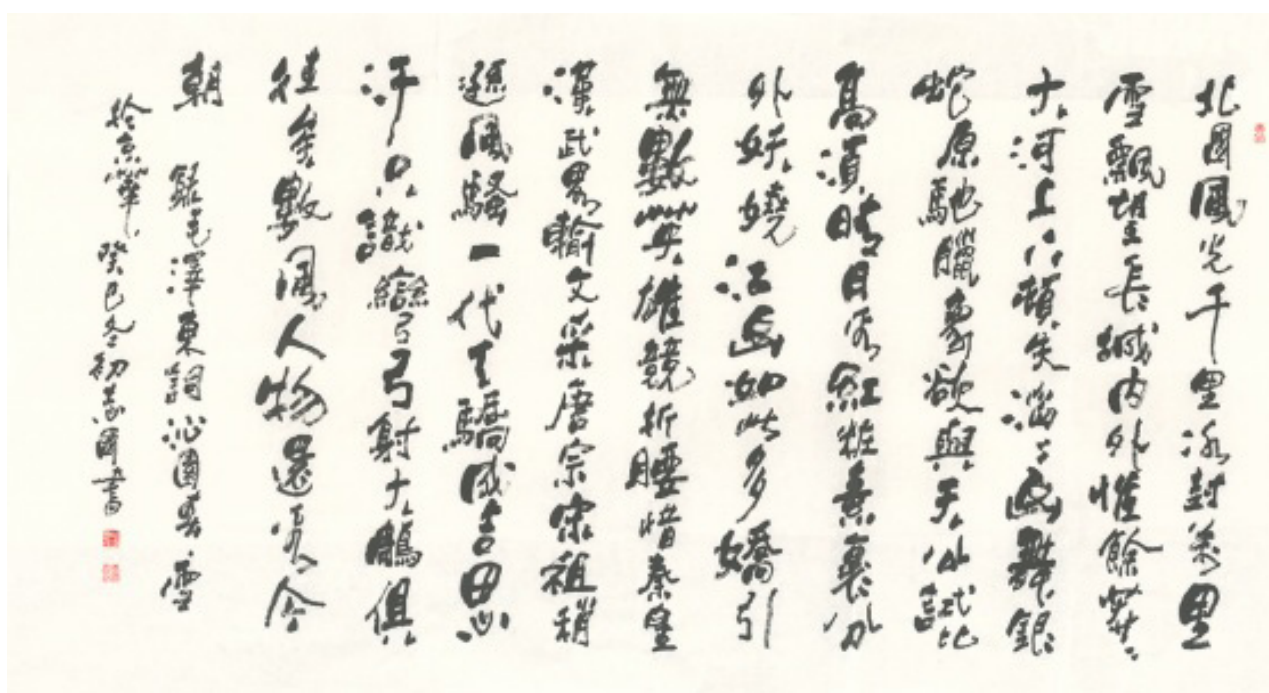 北國風光千里冰封萬里
雪飄望長城內外惟餘莽〻
大河上下頓失滔〻山舞銀
蛇原馳臘象欲與天公試比
高須晴日看紅粧素裹分
外妖嬈江山如此多嬌引
無數英雄競折腰惜秦皇
漢武略輸文采唐宗宋祖稍
遜風騷一代天驕成吉思
汗只識彎弓射大鵰俱
往矣數風人物還看今
朝 錄毛澤東詞沁園春雪
於京華癸巳冬初志國書